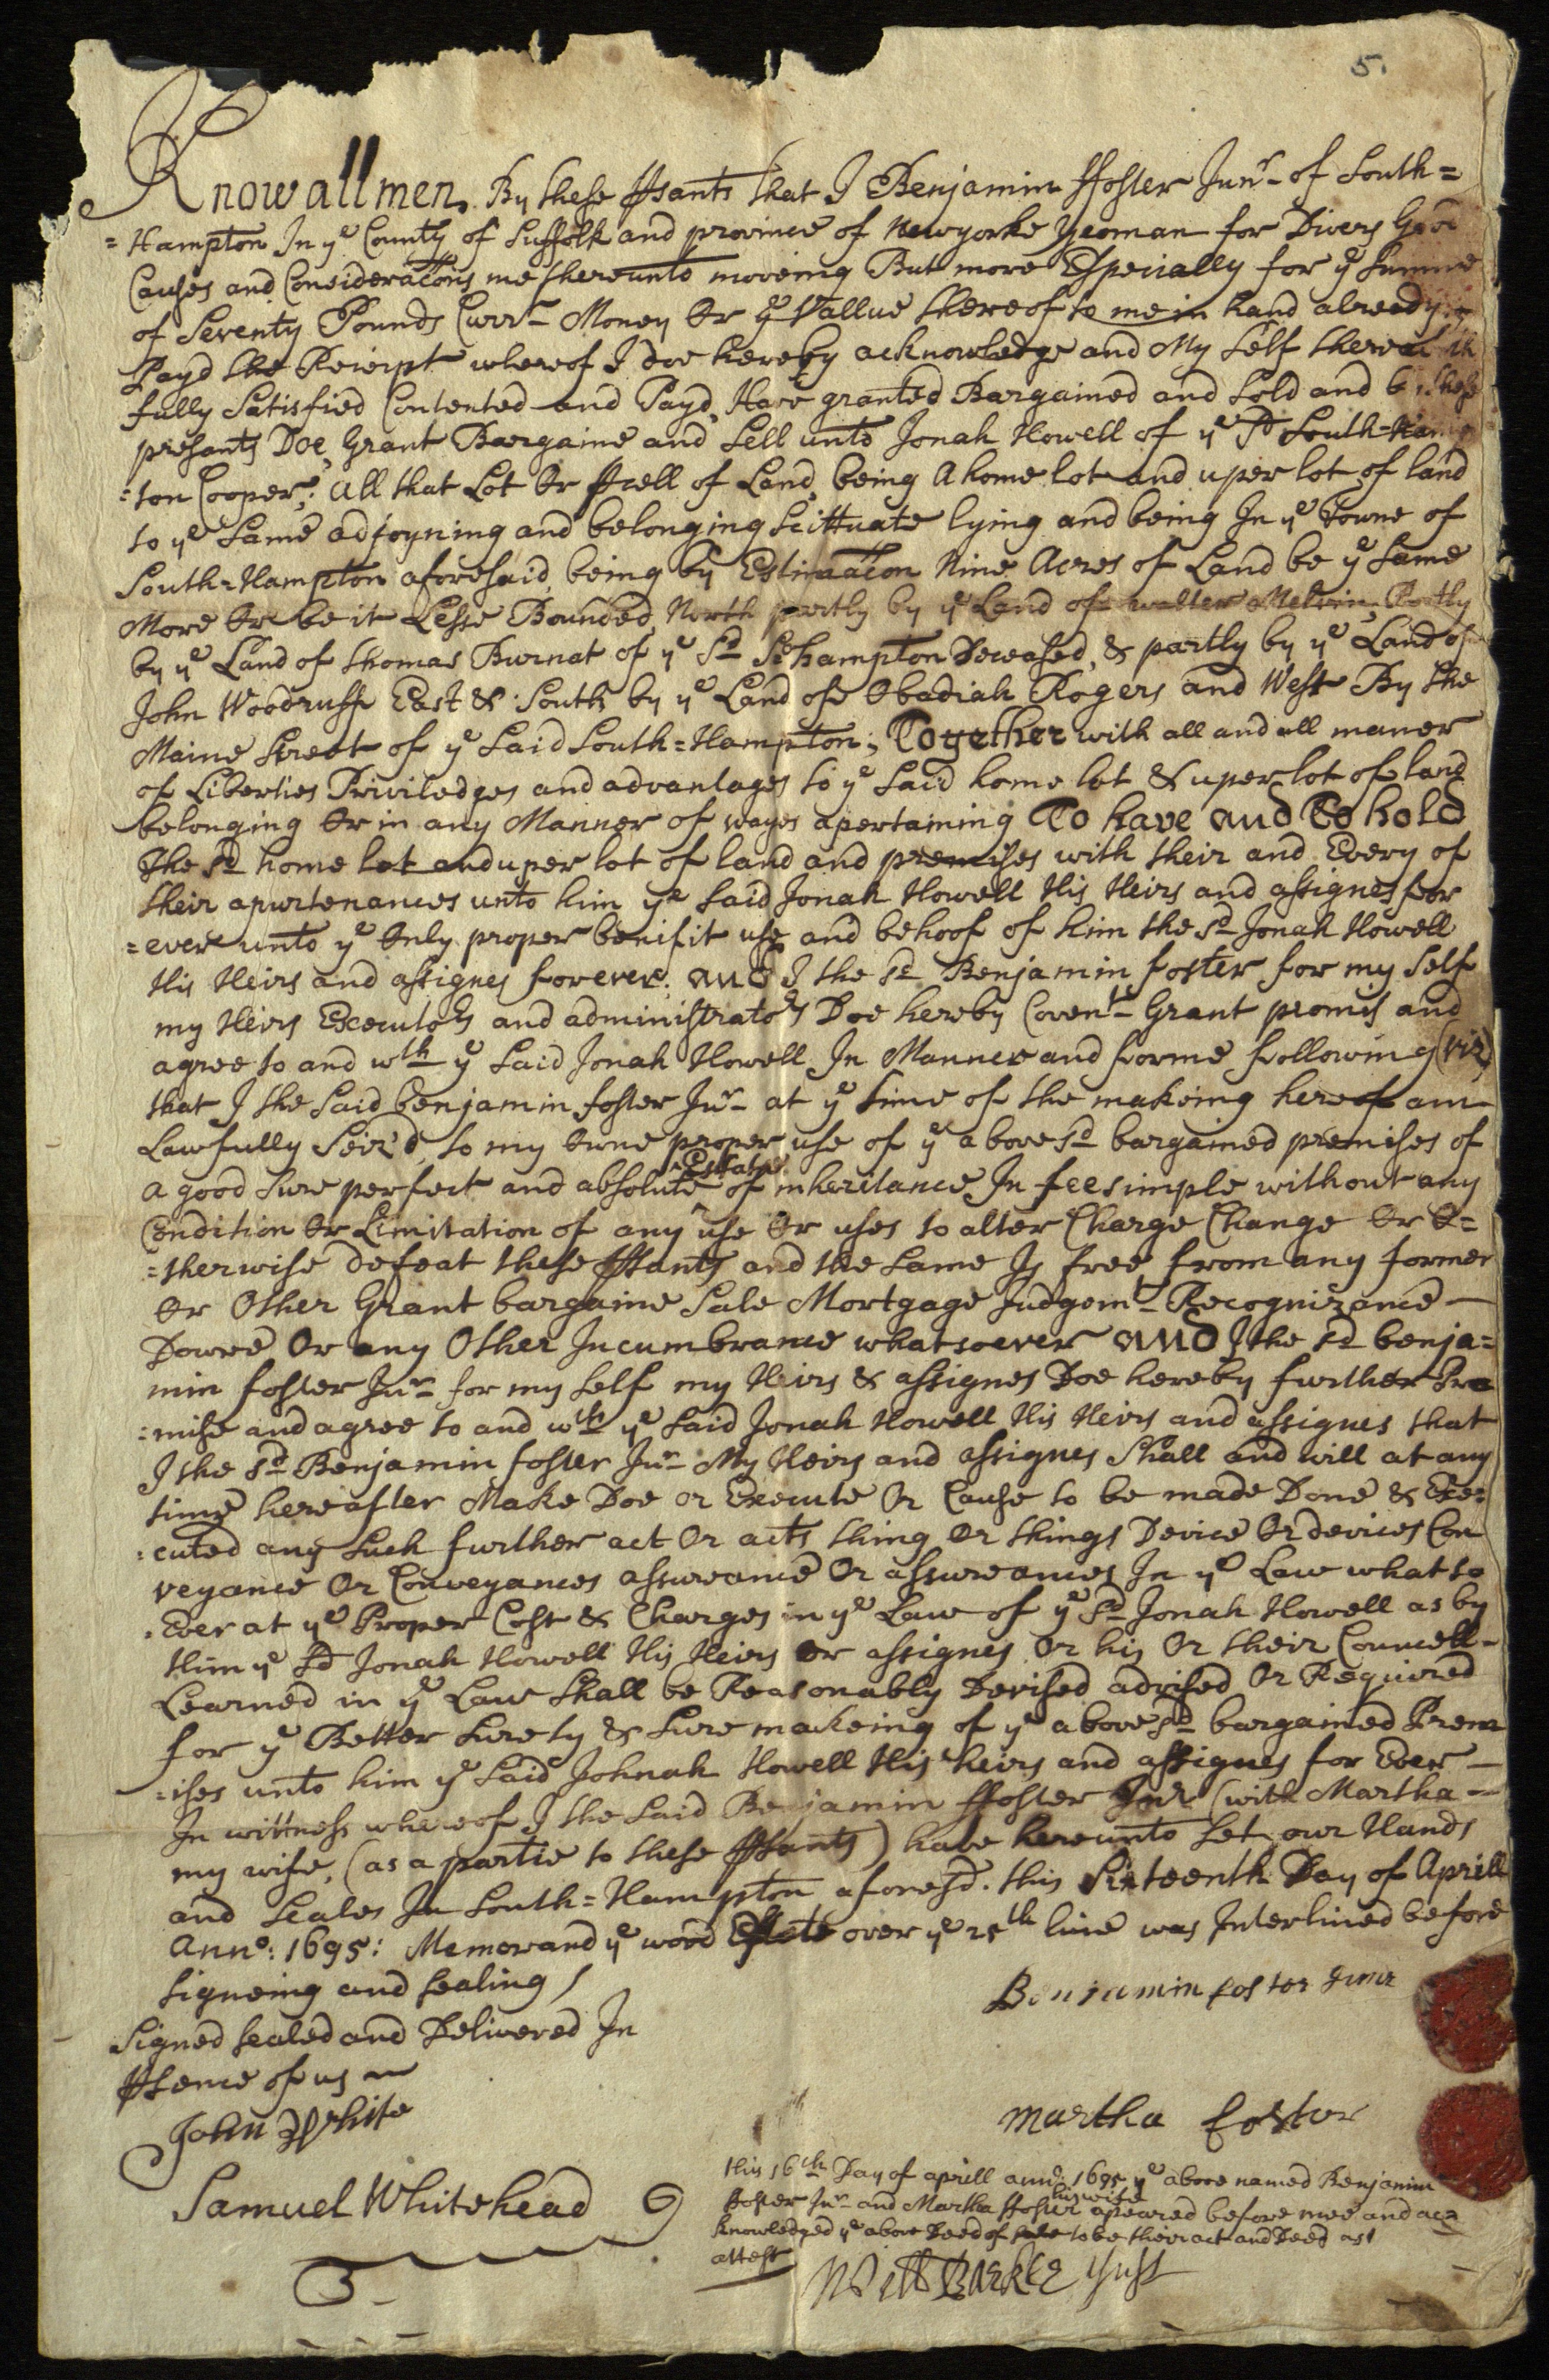 5.
Know all men By these Psants that I Benjamin ffoster Junr of South=
=Hampton In ye County of Suffolk and province of Newyorke Yeoman for Divers Good
Causes and Consideracons me thereunto moveing But more Especially for ye Summe
of Seventy Pounds Currt Money Or ye Vallue thereof to me in hand already
Payd the Reciept whereof I doe hereby acknowledge and My Self therewith
fully Satisfied Contented and Payd, Have granted Bargained and Sold and by these
presants Doe, Grant Bargaine and Sell unto Jonah Howell of ye Sd South-Hamp
=ton Cooper; all that Lot Or Psell of Land, being A home lot and uper lot of land
to ye Same adjoyning and belonging Scittuate lying and being In ye Towne of
South=Hampton aforesaid being by Estimacon Nine Acres of Land be ye Same
More Or be it Lesse Bounded, North partly by ye Land of walter Melvin, Partly
by ye Land of Thomas Burnat of ye Sd Sohampton Deceased, & partly by ye Land of
John Woodruff East & South by ye Land of Obadiah Rogers and West By the
Maine Street of ye Said South=Hampton; Together with all and all maner
of Liberties Priviledges and advantages to ye Said home lot & uper lot of land
belonging Or in any Manner of wayes apertaining To have and To hold
The Sd home lot and uper lot of land and premises with their and Every of
their apurtenances unto him ye Said Jonah Howell His Heirs and assignes for
=ever unto ye Only proper benifit use and behoof of him the Sd Jonah Howell
His Heirs and assignes forever; and I the sd Benjamin foster for my Self
my Heirs Executors and administrators Doe hereby Covent Grant promis and
agree to and wth ye Said Jonah Howell In Manner and forme following (viz)
that I the Said Benjamin foster Junr at ye time of the makeing hereof am
Lawfully Seiz'd, to my Owne proper use of ye above sd bargained premises of
Estate
a good Sure perfect and absolute ^ of inheritance In fee simple without any
Condition Or Limitation of any use Or uses to alter Charge Change Or O=
=therwise defeat these Psants and the Same Is free from any former
Or Other Grant bargaine Sale Mortgage Judgemt Recognizance
Dowre Or any Other Incumbrance whatsoever and I the sd benja=
min foster Junr for my Self my Heirs & assignes Doe hereby further Pro
=mise and agree to and wth ye Said Jonah Howell His Heirs and assignes that
I the sd Benjamin foster Junr My Heirs and assignes Shall and will at any
time hereafter Make Doe or Execute Or Cause to be made Done & Exe=
=cuted any Such further act Or acts thing Or things Device Or devices Con
veyance Or Conveyances assureance Or assureances In ye Law what so
Ever at ye Proper Cost & Charges in ye Law of ye Sd Jonah Howell as by
Him ye Sd Jonah Howell His Heirs Or assignes Or his Or their Councell
Learned in ye Law Shall be Reasonably Devised advised Or Required
for ye Better Surety & Sure makeing of ye above sd bargained Prem
=ises unto him ye Said Johnah Howell His heirs and assignes for Ever
In wittness whereof I the Said Benjamin ffoster Junr (with Martha
my wife, (as a partie to these Psants) have hereunto Set our Hands
and Seales In South=Hampton aforesd. this Sixteenth Day of Aprill
Anno: 1695: Memorand ye word Estate over ye 25th line was Interlined before
Signeing and sealing
Benjamin foster Junr
Signed sealed and Delivered In
Psence of us
John White
Martha foster
Samuel Whitehead
this 16th Day of aprill anno: 1695 ye above named Benjamin
his wife
ffoster Junr and Martha ffoster apeared before mee and ac=
knowledged ye above Deed of sale to be their act and Deed as
attest
Will Barker Just